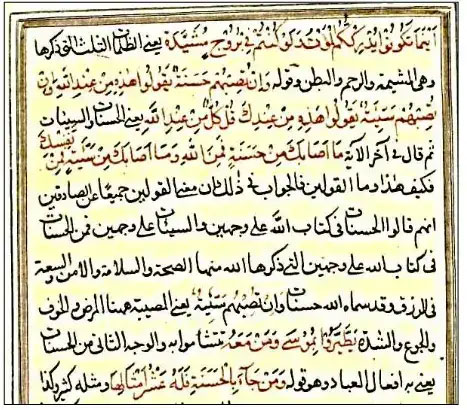 اَيْنَمَا تَكُونُوا يُدْرِكْكُمُ الْمَوْتُ وَلَوْ كُنْتُمْ فِي بُرُوجٍ مُشَيَّدَةٍ يعني الظلمات الثلث التي ذكرها
وهي المشيمة والرحم والبطن وقوله وَاِنْ تُصِبْهُمْ حَسَنَةٌ يَقُولُوا هٰذِهِ مِنْ عِنْدِ اللهِ وَاِنْ
تُصِبْهُمْ سَيِّئَةٌ يَقُولُوا هٰذِهِ مِنْ عِنْدِكَ قُلْ كُلٌّ مِنْ عِنْدِ اللهِ يعني الحسنات والسيئات
ثم قال في آخر الآية مَا اَصَابَكَ مِنْ حَسَنَةٍ فَمِنَ اللهِ وَمَا اَصَابَكَ مِنْ سَيِّئَةٍ فَمِنْ نَفْسِكَ
فكيف هذا وما القولين فالجواب في ذلك ان معنى القولين جميعا عن الصادقين
انهم قالوا الحسنات في كتاب الله على وجهين والسيئات على وجهين فمن الحسنات
في كتاب الله على وجهين التي ذكرها الله منها الصحة والسلامة والامن والسعة
في الرزق وقد سماه الله حسنات وَاِنْ تُصِبْهُمْ سَيِّئَةٌ يعني المصيبة ههنا المرض والخوف
والجوع والشدة يَطَّيَّرُوا بِمُوسٰى وَمَنْ مَعَهُ تتشاموا به والوجه الثاني من الحسنات
يعني به افعال العباد وهو قوله وَمَنْ جَآءَ بِالْحَسَنَةِ فَلَهُ عَشْرُ اَمْثَالِهَا ومثله كثير وكذا